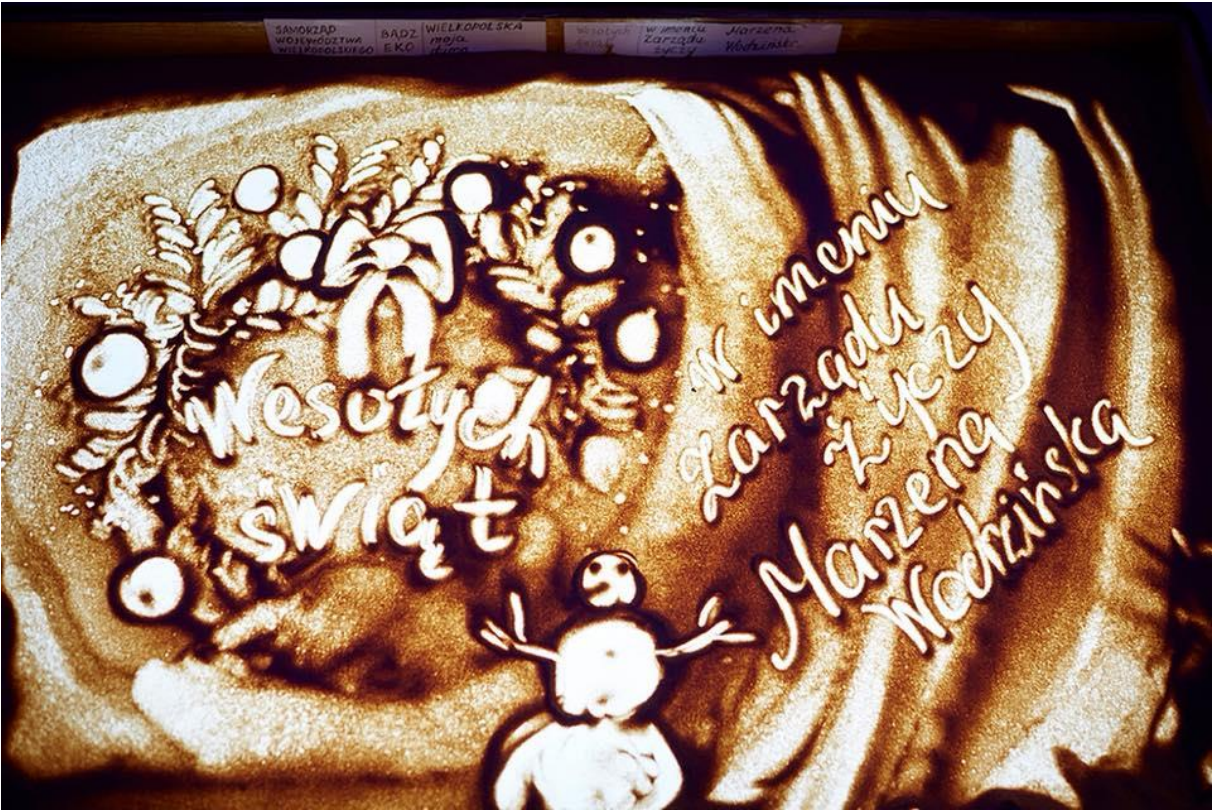 SAMORZĄD
WOJEWÓDZTWA
WIELKOPOLSKIEGO
BĄDŹ
EKO
WIELKOPOLSKA
moja
duma
Wesołych
Świąt
w imieniu
Zarządu
życzy
Marzena
Wodzińska
Wesołych
świąt
w imeniu
Zarządu
życzy
Marzena
Wodzińska